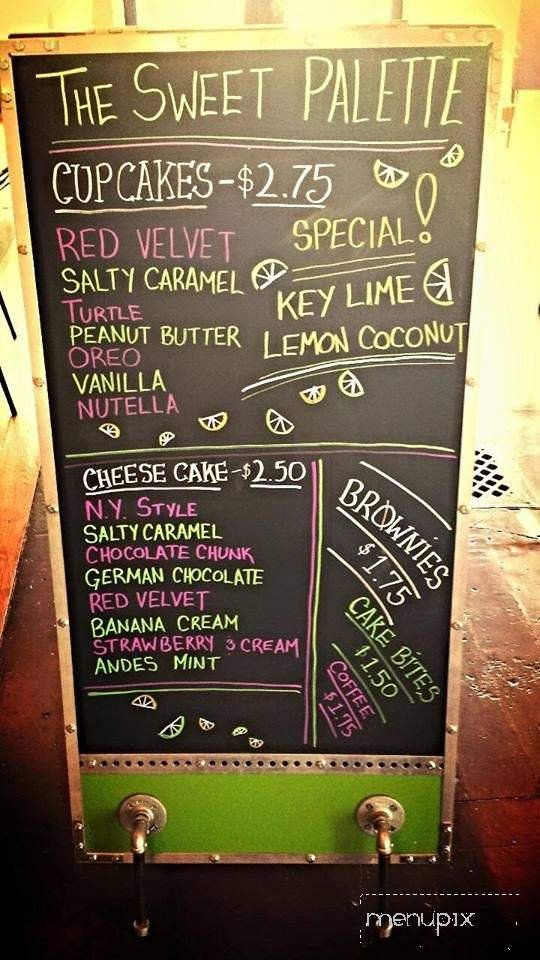 THE SWEET PALETTE
CUPCAKES-$2.75
RED VELVET
SALTY CARAMEL
TURTLE
PEANUT BUTTER
OREO
VANILLA
NUTELLA
SPECIAL!
KEY LIME
LEMON COCONUT
CHEESE CAKE-$2.50
N.Y. STYLE
SALTY CARAMEL
CHOCOLATE CHUNK
GERMAN CHOCOLATE
RED VELVET
BANANA CREAM
STRAWBERRY & CREAM
ANDES MINT
BROWNIES
$1.75
CAKE BITES
$1.50
COFFEE
$1.75
menupix